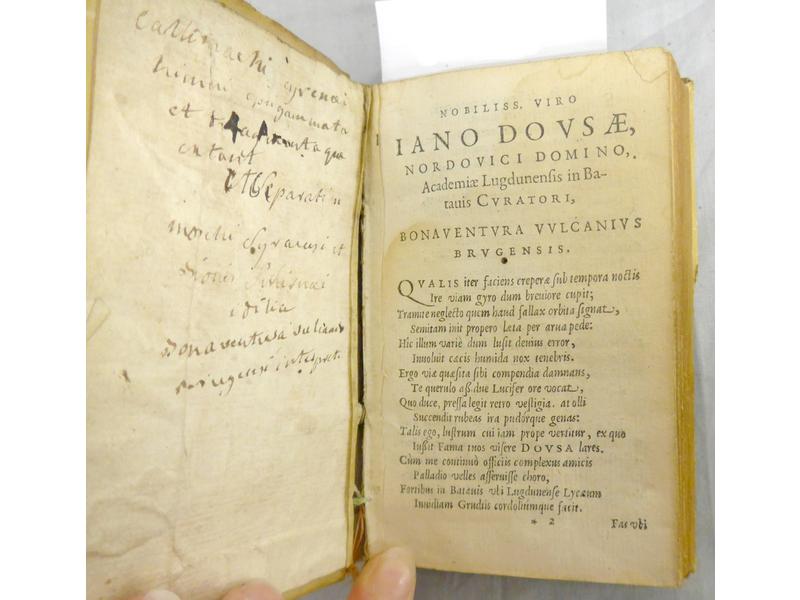 Callimachi Cyrenæi
himni epigrammata
et
separatim
moschi Syracusi et
idilia
Bonaventura
interprete
NOBILISS. VIRO
IANO DOVSÆ,
NORDOVICI DOMINO,
Academiæ Lugdunensis in Ba-
tauis CVRATORI,
BONAVENTVRA VVLCANIVS
BRVGENSIS.
QVALIS iter faciens creperæ sub tempora noctis
Ire viam gyro dum breuiore cupit;
Tramite neglecto quem haud fallax orbita signat,
Semitam init propero leta per arua pede:
Hic illum variè dum lusit deuius error,
Inuoluit cæcis humida nox tenebris.
Ergo viæ quæsita sibi compendia damnans,
Te querulo assidue Lucifer ore vocat,
Quo duce, pressa legit retro vestigia. at olli
Succendit rubeas ira pudorque genas:
Talis ego, lustrum cui iam prope vertitur, ex quo
Iussit Fama tuos visere DOVSA lares.
Cùm me continuò officiis complexus amicis
Palladio velles asseruisse choro,
Fortibus in Batauis vbi Lugdunense Lycæum
Inuidiam Grudiis cordoliumque facit.
* 2 Fas vbi